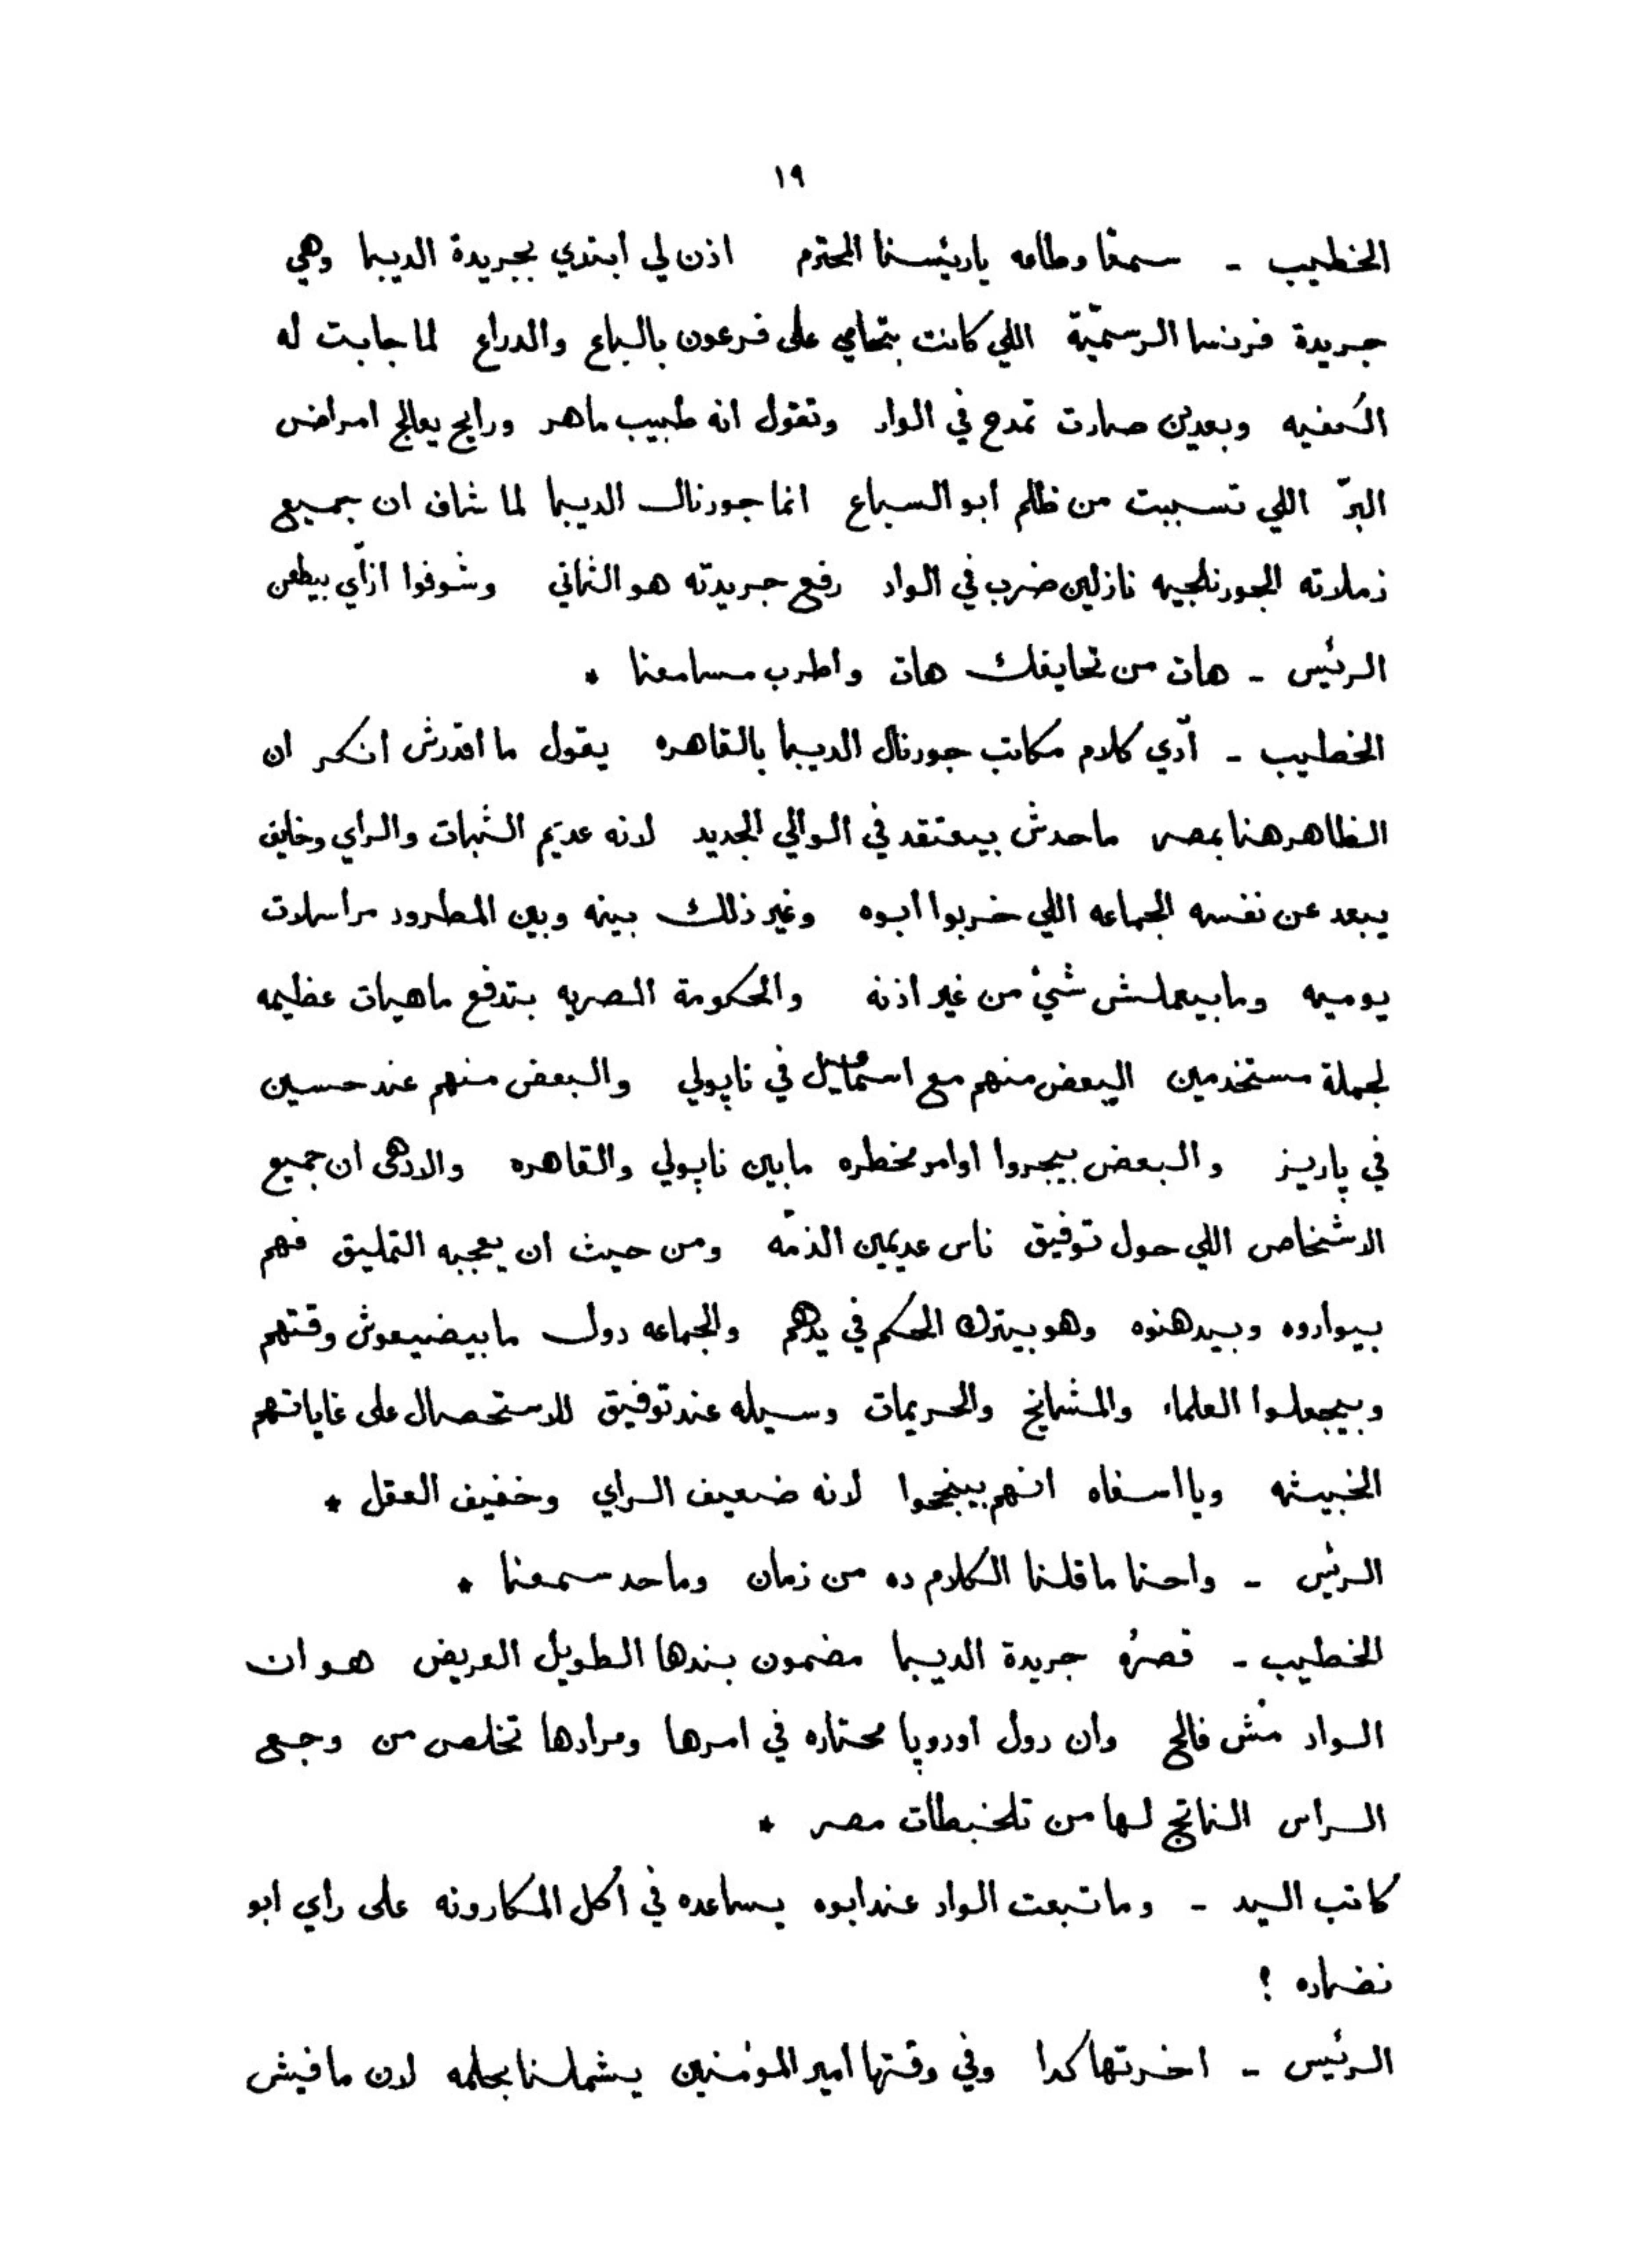 ١٩
الخطيب - سمعًا وطاعه ياريئسنا المحترم اذن لي ابتدي بجريدة الديبا وهي
جريدة فرنسا الرسميّة اللي كانت بتحامي على فرعون بالباع والدراع لما جابت له
الكفيه وبعدين صارت تمدح في الواد وتقول انه طبيب ماهر ورايح يعالج امراض
البرّ اللي تسببت من ظلم ابو السباع انما جورنال الديبا لما شاف ان جميع
زملاته الجورنلجيه نازلين ضرب في الواد رفع جريدته هو الثاني وشوفوا ازاّي بيطعن
الرئيس - هات من تحايفك هات واطرب مسامعنا *
الخطيب - آدي كلام مكاتب جورنال الديبا بالقاهره يقول ما اقدرش انكر ان
الظاهر هنا بمصر ماحدش بيعتقد في الوالي الجديد لانه عديم الثبات والراي وخايف
يبعد عن نفسه الجماعه اللي خربوا ابوه وغير ذلك بينه وبين المطرود مراسلات
يوميه ومابيعملش شئ من غير اذنه والحكومة المصريه بتدفع ماهيات عظيمه
لجملة مستخدمين البعض منهم مع اسمٰعيل في ناپولي والبعض منهم عند حسين
في پاريز والبعض بيجروا اوامر مخطره مابين ناپولي والقاهره والادهى ان جميع
الاشخاص اللي حول توفيق ناس عديمين الذمّه ومن حيث ان يعجبه التمليق فهم
بيواروه وبيدهنوه وهو بيترك الحكم في يدهم والجماعه دول مابيضيعوش وقتهم
وبيجعلوا العلماء والمشايخ والحريمات وسيله عند توفيق للاستحصال على غاياتهم
الخبيثه ويا اسفاه انهم بينجحوا لانه ضعيف الراي وخفيف العقل *
الرئيس - واحنا ماقلنا الكلام ده من زمان وماحد سمعنا *
الخطيب - قصرُه جريدة الديبا مضمون بندها الطويل العريض هو ان
الواد مش فالح وان دول اوروپا محتاره في امرها ومرادها تخلص من وجع
الراس الناتج لها من تلخبطات مصر *
كاتب السيد - وماتبعت الواد عند ابوه يساعده في اكل المكارونه على راي ابو
نضاره ؟
الرئيس - اخرتها كدا وفي وقتها امير المؤمنين يشملنا بحلمه لان مافيش